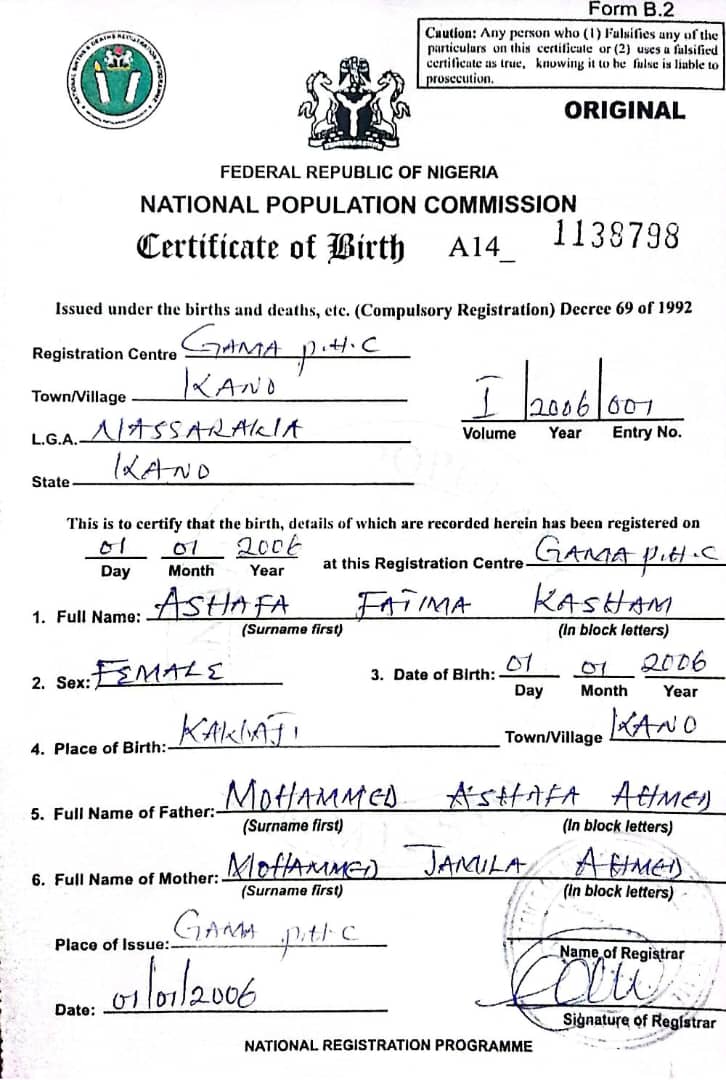 Form B.2
Caution: Any person who (1) Falsifies any of the
particulars on this certificate or (2) uses a falsified
certificate as true, knowing it to be false is liable to
prosecution.
NATIONAL BIRTHS & DEATHS REGISTRATION PROGRAMME
ORIGINAL
FEDERAL REPUBLIC OF NIGERIA
NATIONAL POPULATION COMMISSION
Certificate of Birth A14_ 1138798
Issued under the births and deaths, etc. (Compulsory Registration) Decree 69 of 1992
Registration Centre GAMA P.H.C
Town/Village KANO
I 2006 001
L.G.A. NASSARAWA
Volume Year Entry No.
State KANO
This is to certify that the birth, details of which are recorded herein has been registered on
01 01 2006 at this Registration Centre GAMA P.H.C
Day Month Year
1. Full Name: ASHAFA FATIMA KASHAM
(Surname first) (In block letters)
2. Sex: FEMALE 3. Date of Birth: 01 01 2006
Day Month Year
4. Place of Birth: Town/Village KANO
5. Full Name of Father: MOHAMMED ASHAFA AHMED
(Surname first) (In block letters)
6. Full Name of Mother: MOHAMMED JAMILA AHMED
(Surname first) (In block letters)
Place of Issue: GAMA P.H.C
Name of Registrar
Date: 01/01/2006
Signature of Registrar
NATIONAL REGISTRATION PROGRAMME